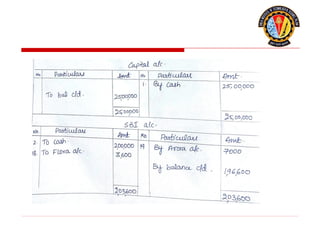 Capital a/c.
no Particulars Amt no Particulars Amt
1. By Cash 25,00,000
To bal c/d. 2500,000
2500,000 25,00,000
SBI a/c.
no Particulars Amt No Particulars Amt
2. To Cash 200,000 19 By Arora a/c. 7000
13. To Flora a/c 3,600
By balance c/d. 1,96,600
203,600 203,600